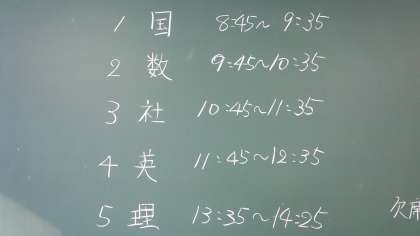 1 国 8:45～9:35
2 数 9:45～10:35
3 社 10:45～11:35
4 英 11:45～12:35
5 理 13:35～14:25
欠席